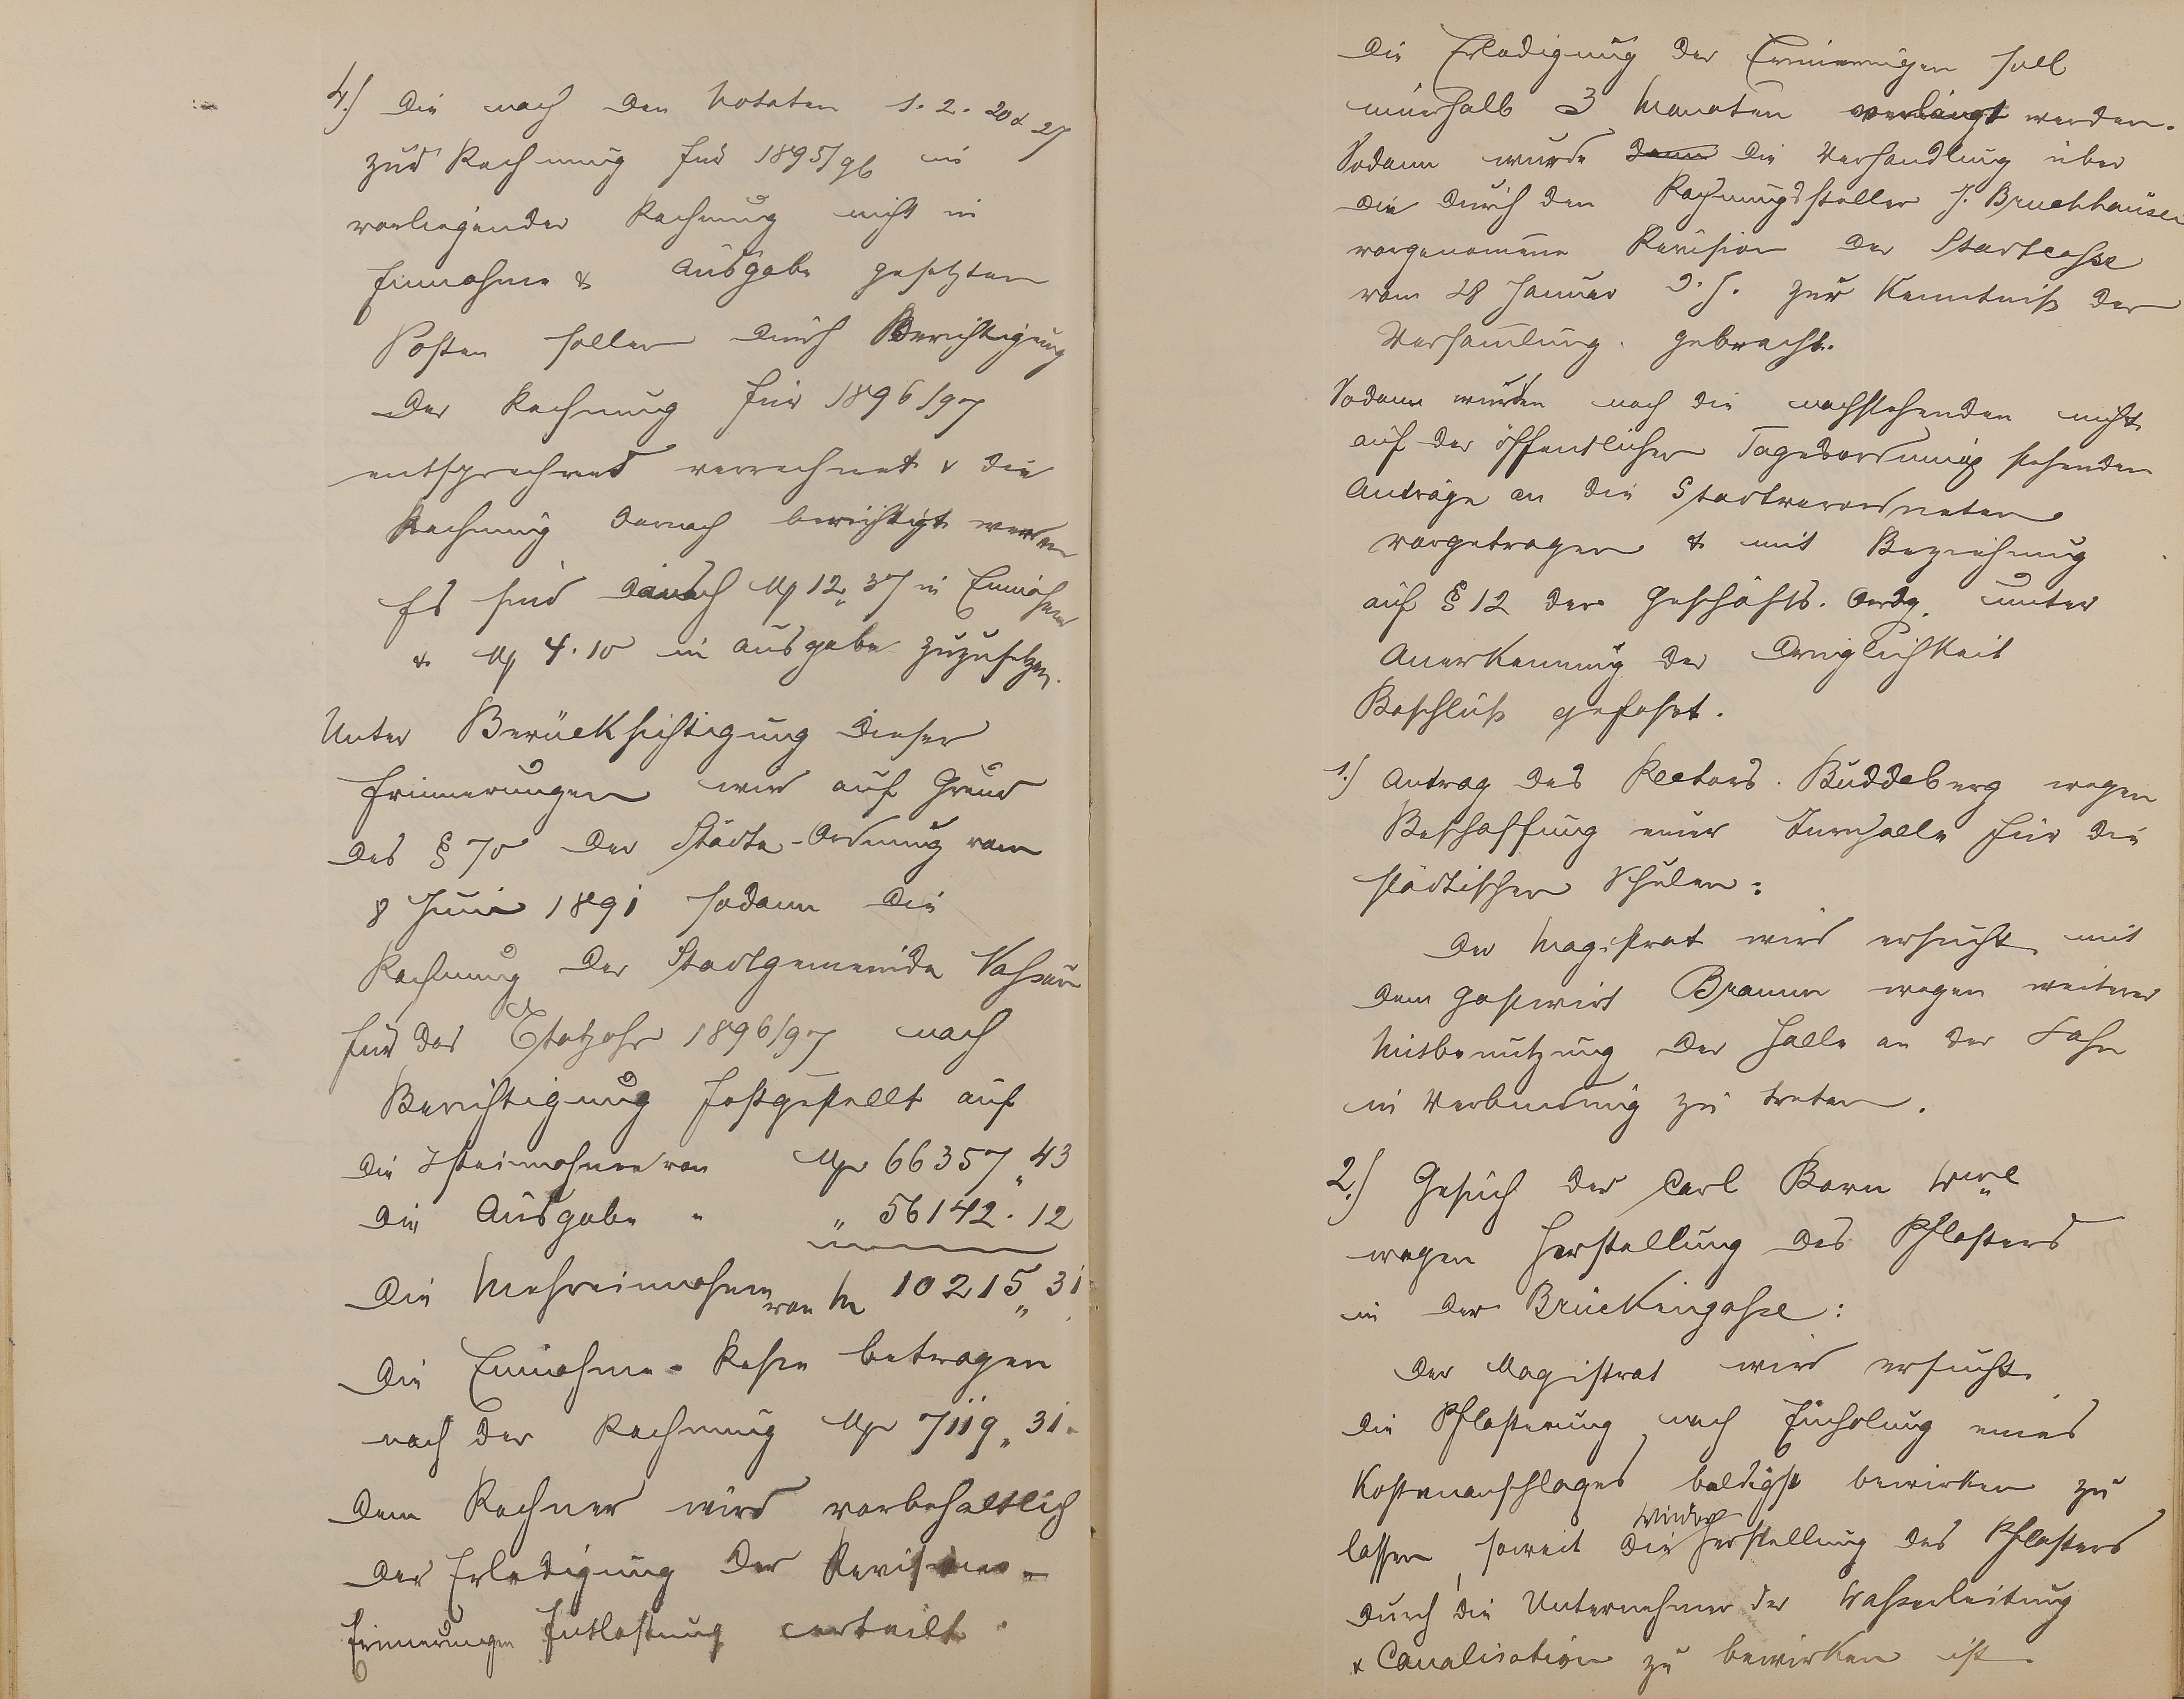 4.) Die nach den Notaten 1. 2. 20 & 27
zur Rechnung für 1895/96 in
vorliegender Rechnung nicht in
Einnahme & Ausgabe gesetzten
Posten sollen durch Berichtigung
der Rechnung für 1896/97
entsprechend verrechnet & die
Rechnung darnach berichtigt werden
Es sind danach M 12,,37 in Einnahme
& M 4.10 in Ausgabe zuzusetzen.
Unter Berücksichtigung dieser
Erinnerungen wird auf Grund
des § 70 der Städte-Ordnung vom
8 Juni 1891 sodann die
Rechnung der Stadtgemeinde Nassau
für das Etatjahr 1896/97 nach
Berichtigung festgestellt auf
die Isteinnahme von M 66357,,43
die Ausgabe " " 56142.12
die Mehreinnahme von M 10215,,31
Die Einnahme-Reste betragen
nach der Rechnung M 7119,,31.
Dem Rechner wird vorbehaltlich
der Erledigung der Revisions-
Erinnerungen Entlastung erteilt.
Die Erledigung der Erinnerungen soll
innerhalb 3 Monaten verlangt werden.
Sodann wurde dann die Verhandlung über
die durch den Rechnungssteller J. Bruchhäuser
vorgenommene Revision der Stadtcasse
vom 28 Januar d. J. zur Kenntniß der
Versamlung gebracht.
Sodann wurden noch die nachstehenden nicht
auf der öffentlichen Tagesordnung stehenden
Anträge an die Stadtverordneten
vorgetragen & mit Beziehung
auf § 12 der Geschäfts. Ordg. unter
Anerkennung der Dringlichkeit
Beschluß gefaßt.
1.) Antrag des Rectors Buddeberg wegen
Beschaffung einer Turnhalle für die
städtischen Schulen:
Der Magistrat wird ersucht mit
dem Gastwirt Bramm wegen weiterer
Mitbenutzung der Halle an der Lahn
in Verbindung zu treten.
2.) Gesuch der Carl Born Wwe
wegen Herstellung des Pflasters
in der Brückengasse:
Der Magistrat wird ersucht
die Pflasterung nach Einholung eines
Kostenanschlages baldigst bewirken zu
lassen, soweit die Wiederherstellung des Pflasters
durch die Unternehmer der Wasserleitung
& Canalisation zu bewirken ist